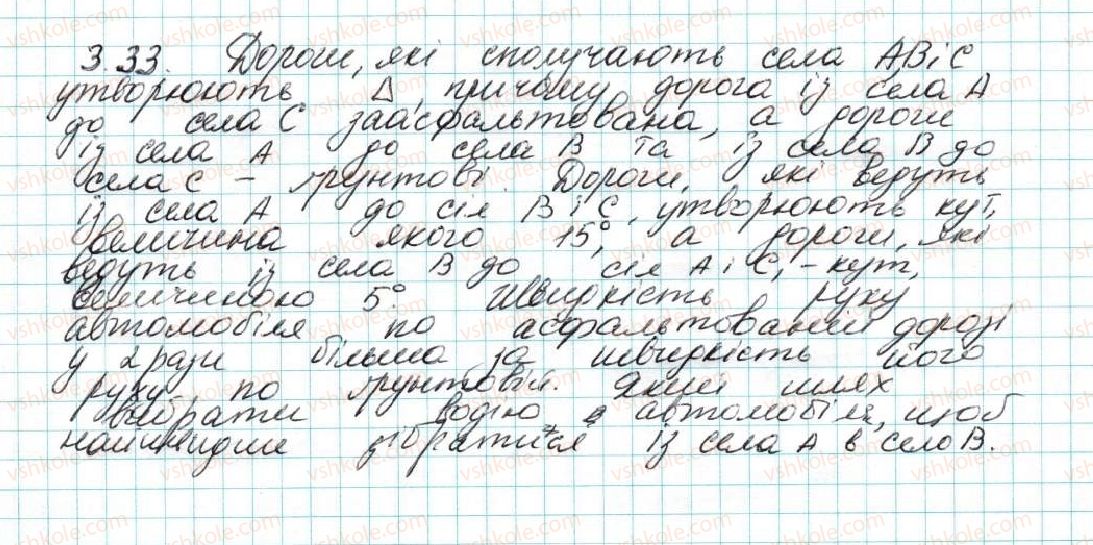 3.33. Дороги, які сполучають села А В і С
утворюють Δ, причому дорога із села А
до села С заасфальтована, а дороги
із села А до села В та із села В до
села С – ґрунтові. Дороги, які ведуть
із села А до сіл В і С, утворюють кут,
величина якого 15°, а дороги, які
ведуть із села В до сіл А і С, – кут,
величиною 5°. Швидкість руху
автомобіля по асфальтованій дорозі
у 2 рази більша за швидкість його
руху по ґрунтовій. Який шлях
вибрати водію автомобіля, щоб
найшвидше дібратися із села А в село В.